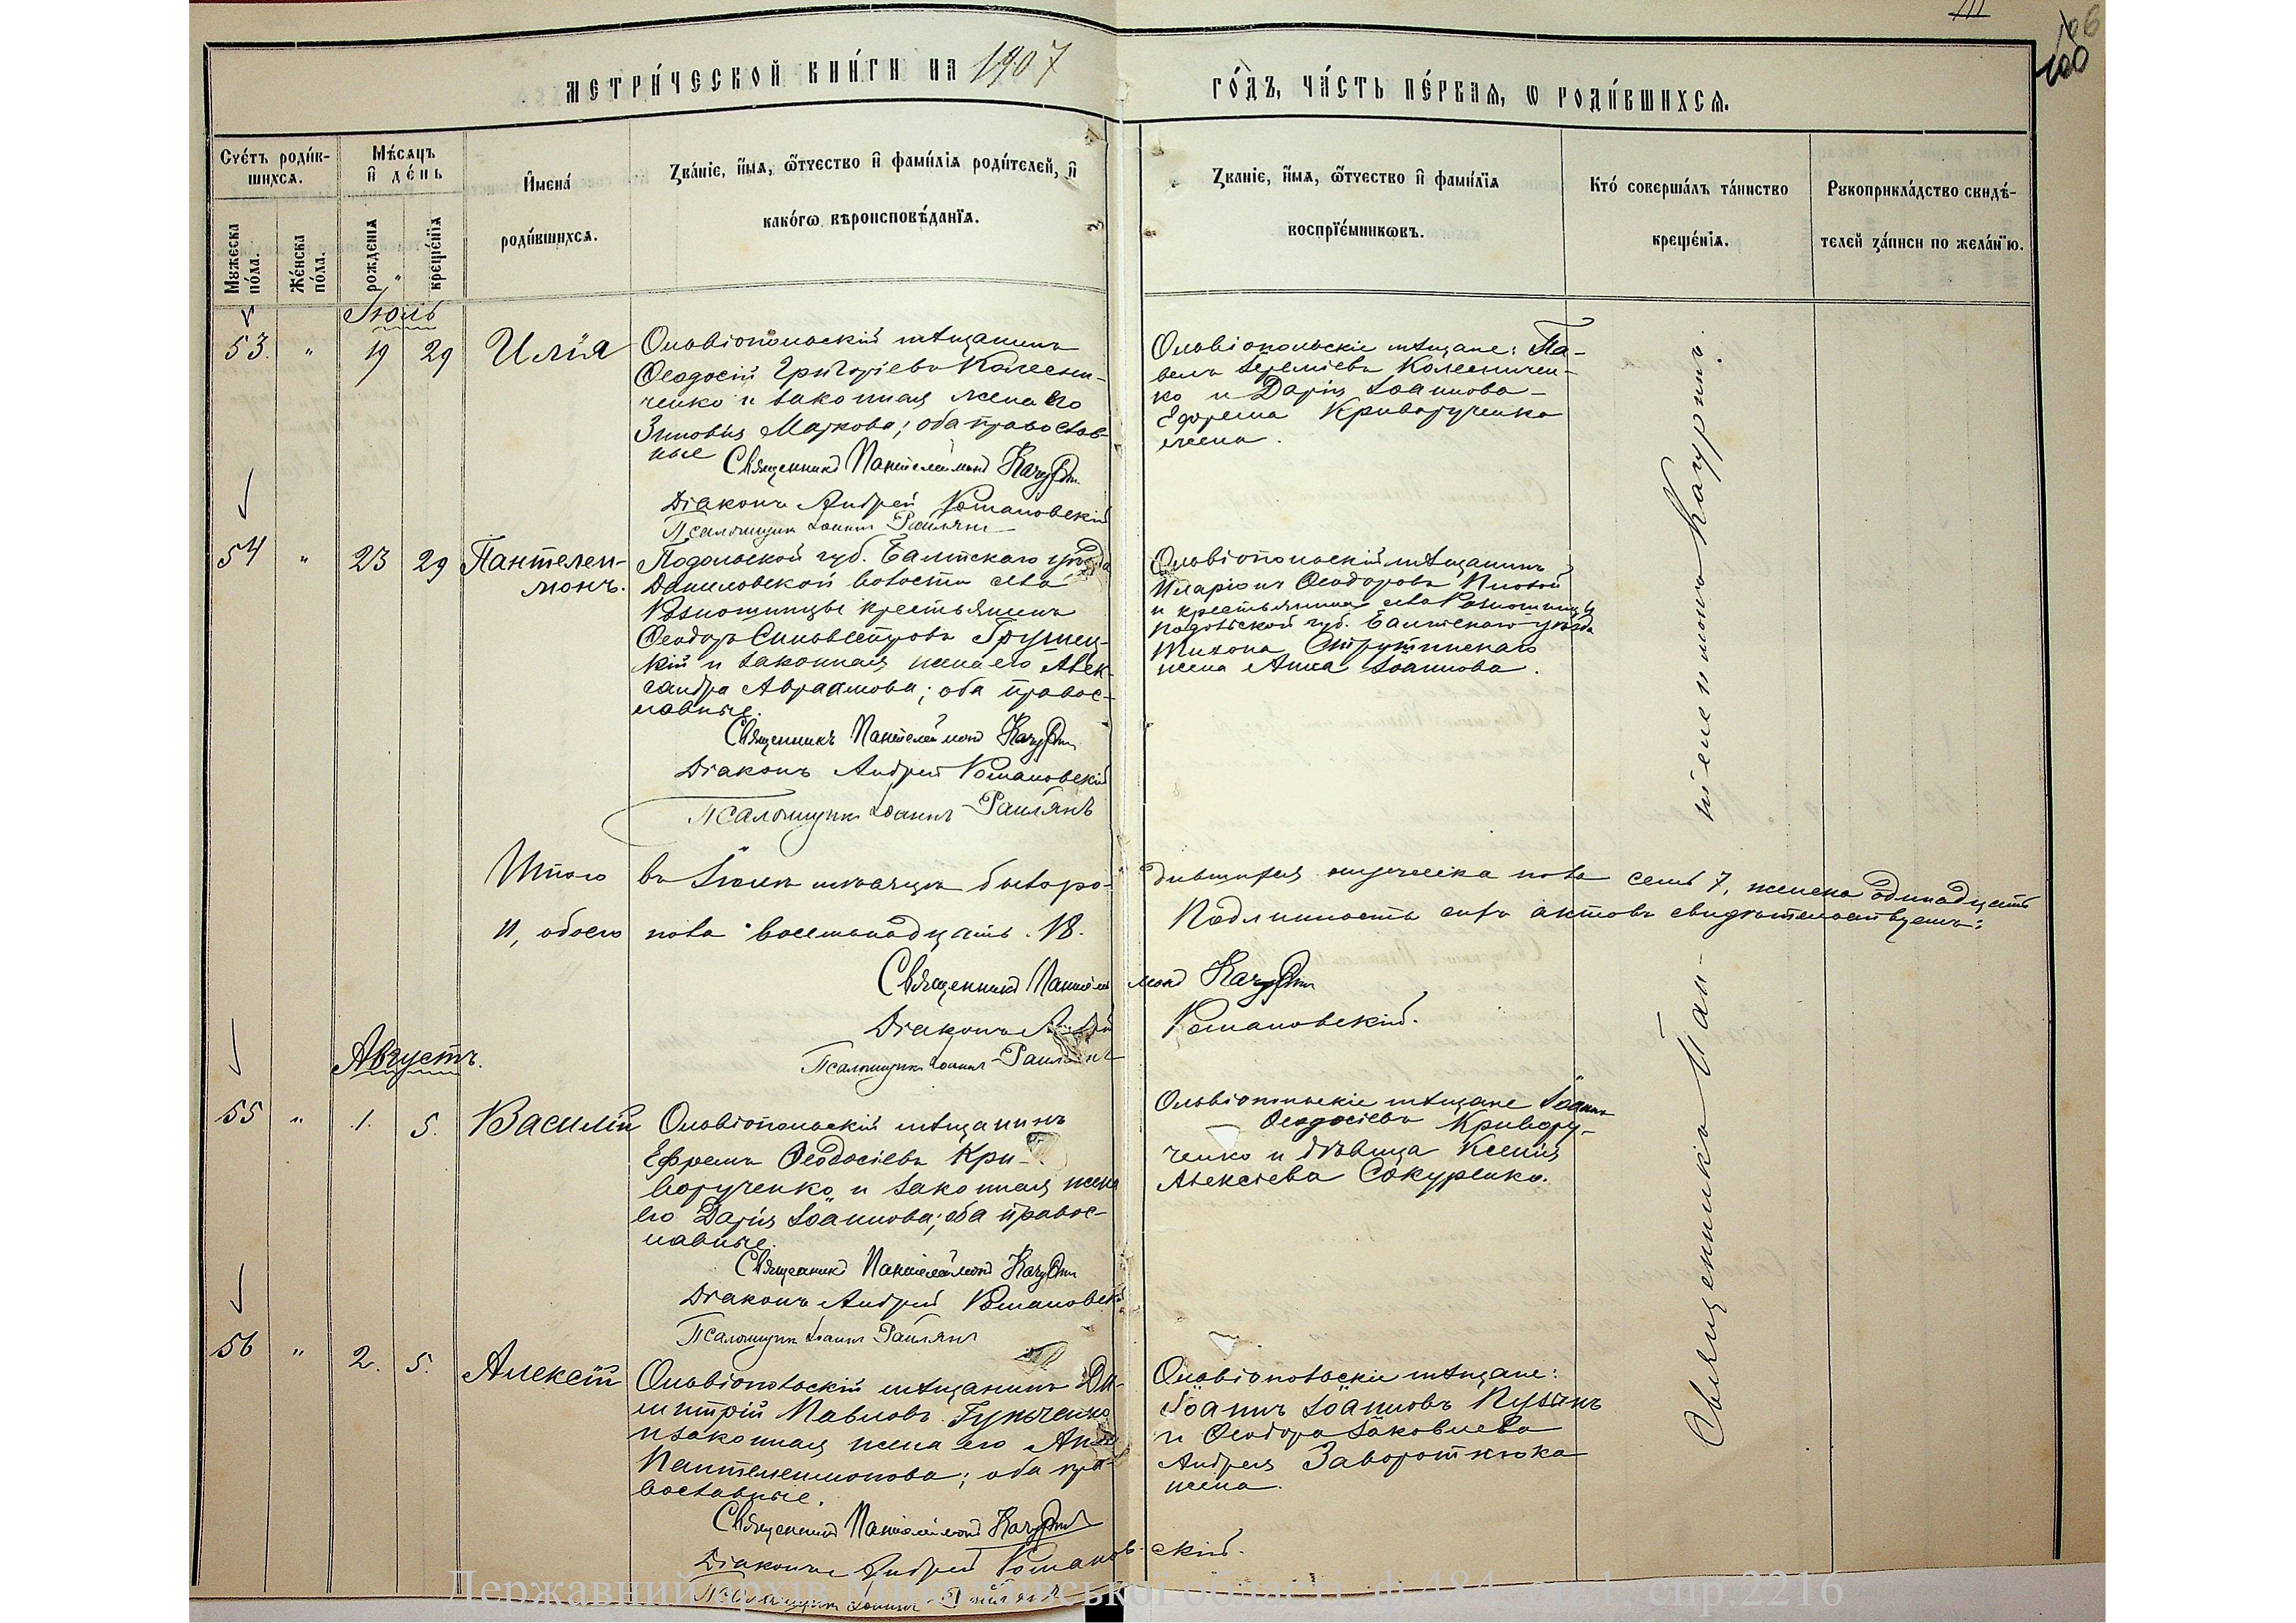 МЕТРИ́ЧЕСКОЙ КНИ́ГИ НА 1907 ГО́ДЪ, ЧА́СТЬ ПЕ́РВАѦ, Ѡ РОДИ́ВШИХСѦ.
100
Счéтъ роди́в-
шихсѧ.
Мꙋжеска пóла.
Жéнска пóла.
Мѣ́сѧцъ
и҆ дéнь
рождéнїѧ
крещéнїѧ
И҆мена́
роди́вшихсѧ.
Зва́нїе, и҆́мѧ, ѻ҆́тчество и҆ фами́лїѧ роди́телей, и҆
како́гѡ вѣроисповѣ́данїѧ.
Зва́нїе, и҆́мѧ, ѻ҆́тчество и҆ фами́лїѧ
воспрїе́мникѡвъ.
Кто́ соверша́лъ та́инство
креще́нїѧ.
Рꙋкоприкла́дство свидѣ́-
телей за́писи по жела́нїю.
Іюль
53. " 19 29 Илія
Ольвіопольскій мѣщанинъ
Ѳеодосій Григоріевъ Колесни-
ченко и законная жена его
Зиновія Маркова; оба православ-
ные
Священникъ Пантелеймонъ
Діаконъ Андрей Романовскій
Псаломщикъ Іоаннъ
Ольвіопольскіе мѣщане: Па-
велъ Іереміевъ Колесничен-
ко и Дарія Іоаннова
Ефрема Криворученка
жена.
54 " 23 29 Пантелеи-
монъ.
Подольской губ. Балтскаго уѣзда
Даниловской волости села
крестьянинъ
Ѳеодоръ Сильвестровъ
кій и законная жена его Алек-
сандра Авраамова; оба правос-
лавные.
Священникъ Пантелеймонъ
Діаконъ Андрей Романовскій
Псаломщикъ Іоаннъ
Ольвіопольскій мѣщанинъ
Иларіонъ Ѳеодоровъ
и крестьянина села
Подольской губ. Балтскаго уѣзда
Тихона Струтинскаго
жена Анна Іоаннова.
Итого въ Іюлѣ мѣсяцѣ было ро- дившихся мужеска пола семь 7, женска одинадцать
11, обоего пола восемнадцать. 18. Подлинность сихъ актовъ свидѣтельствуемъ:
Священникъ Пантелеймонъ
Діаконъ Андрей Романовскій.
Псаломщикъ Іоаннъ
Августъ.
55 " 1. 5. Василій
Ольвіопольскій мѣщанинъ
Ефремъ Ѳеодосіевъ Кри-
ворученко и законная жена
его Дарія Іоаннова; оба правос-
лавные.
Священникъ Пантелеймонъ
Діаконъ Андрей Романовскій
Псаломщикъ Іоаннъ
Ольвіопольскіе мѣщане Іоаннъ
Ѳеодосіевъ Кривору-
ченко и дѣвица Ксенія
Алексіева Сокуренко.
56 " 2. 5. Алексій
Ольвіопольскій мѣщанинъ Ди-
митрій Павловъ
и законная жена его Анна
Пантелеимонова; оба пра-
вославные.
Священникъ Пантелеймонъ
Діаконъ Андрей Романов- скій.
Псаломщикъ Іоаннъ
Ольвіопольскіе мѣщане:
Іоаннъ Іоанновъ
и Ѳеодора Іаковлева
Андрея Заворотнюка
жена.
Священникъ Пан-
телеимонъ
Державний архів Миколаївської області, ф.484, спр.2216